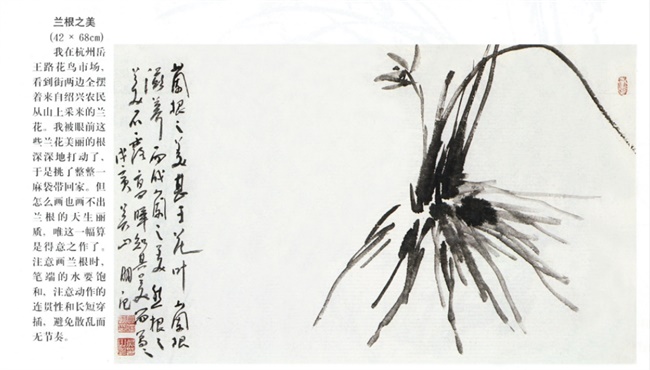 兰根之美
(42 × 68cm)
我在杭州岳
王路花鸟市场,
看到街两边全摆
着来自绍兴农民
从山上采来的兰
花。我被眼前这
些兰花美丽的根
深深地打动了,
于是挑了整整一
麻袋带回家。但
怎么画也画不出
兰根的天生丽
质,唯这一幅算
是得意之作了。
注意画兰根时,
笔端的水要饱
和、注意动作的
连贯性和长短穿
插,避免散乱而
无节奏。
蘭根之美甚于花叶 蘭根
滋养而成蘭之美 然根之
美不露 知其美而画之
戊寅 吴山明记